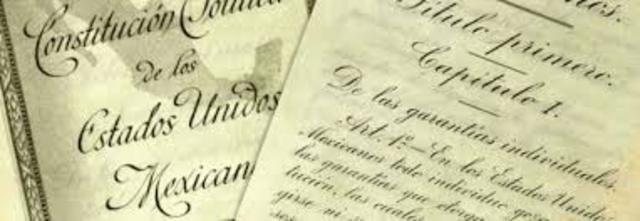 Constitución Política
de los
Estados Unidos
Mexican
os.
Título primero.
Capítulo I.
De las garantías individuales.
Art. 1º.—En los Estados Unido
Mexicanos todo individuo go
las garantías que otorg
tución, las cuales
girse ni s